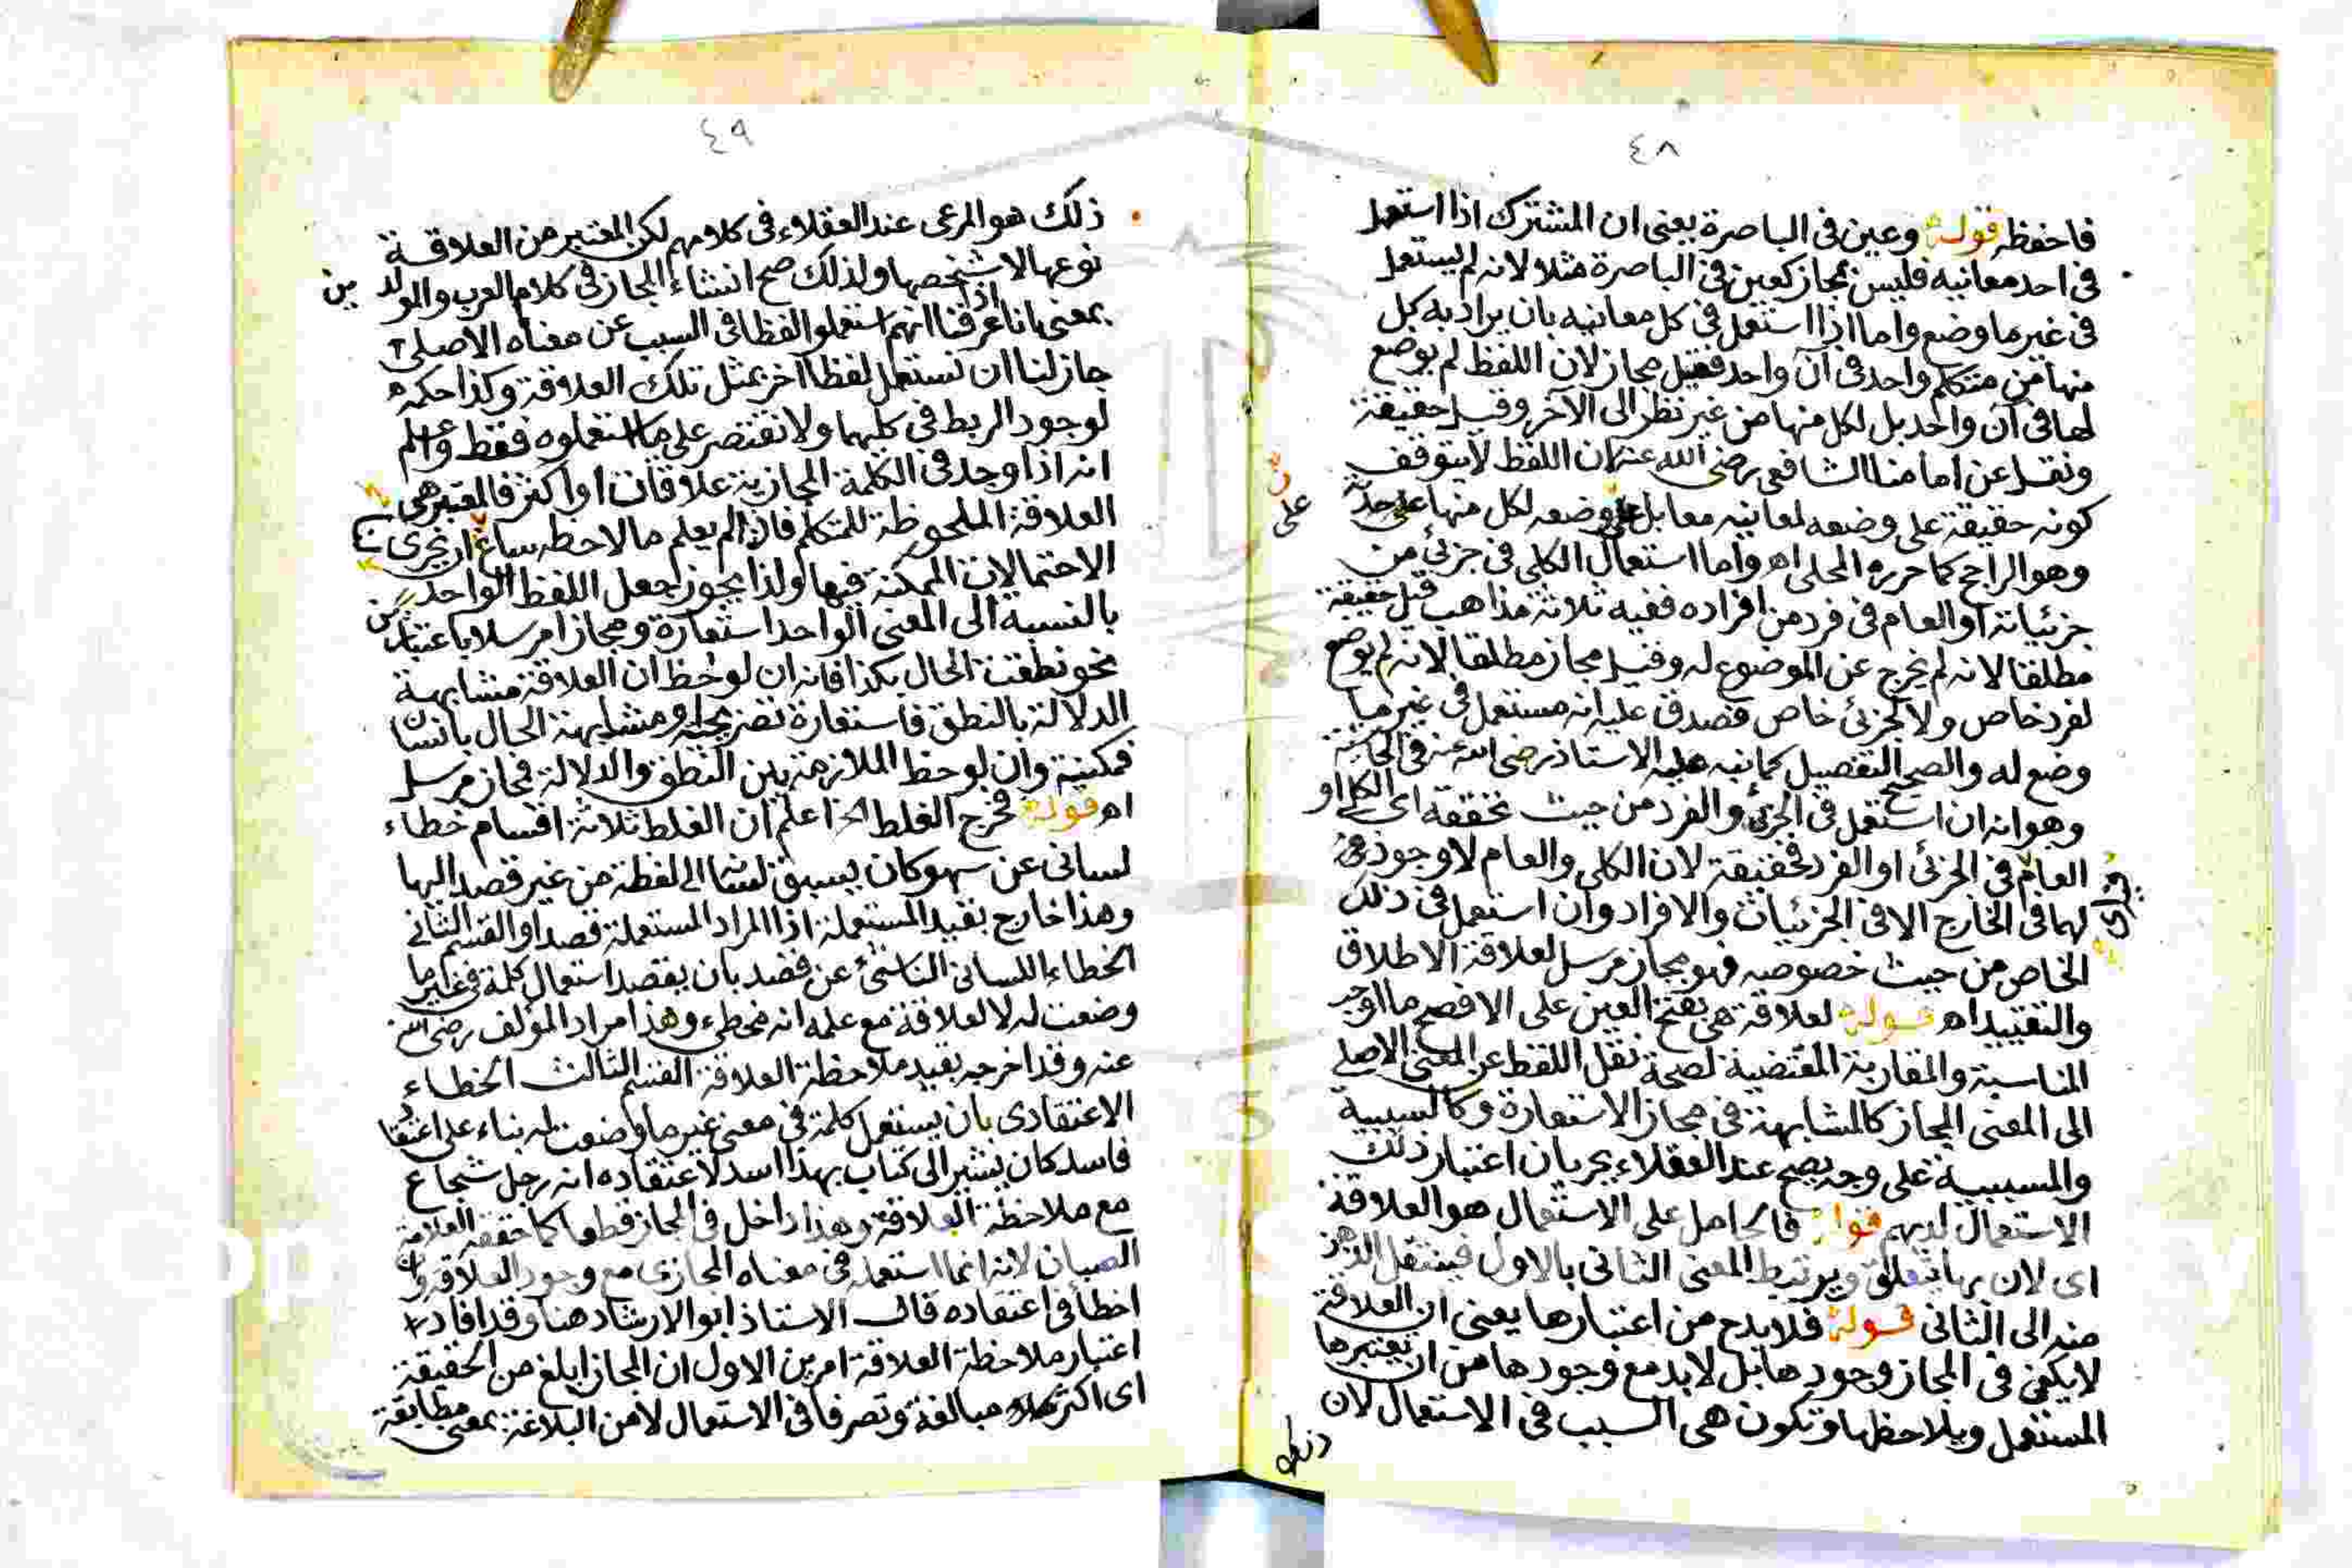 ٤٨
فاحفظه قوله وعين في الباصرة يعنى ان المشترك اذا استعمل
في احد معانيه فليس بمجاز كعين في الباصرة مثلا لانه لم يستعمل
في غير ما وضع واما اذا استعمل في كل معانيه بان يراد به كل
منها من متكلم واحد في آن واحد فقيل مجاز لان اللفظ لم يوضع
لها في آن واحد بل لكل منها من غير نظر الى الآخر وقيل حقيقة
ونقل عن امامنا الشافعى رضى الله عنه لان اللفظ لا يتوقف
كونه حقيقة على وضعه لمعانيه معا بل على وضعه لكل منها على حدته
وهو الراجح كما حرره المحلى اه واما استعمال الكلى في جزئى من
جزئياته او العام في فرد من افراده ففيه ثلاثة مذاهب قيل حقيقة
مطلقا لانه لم يخرج عن الموضوع له وقيل مجاز مطلقا لانه لم يوضع
لفرد خاص ولا لجزئى خاص فصدق عليه انه مستعمل في غير ما
وضع له والصحيح التفصيل كما نبه عليه الاستاذ رضى الله عنه في الحاشية
وهو انه ان استعمل في الجزئى والفرد من حيث تحققه اى الكلى او
العام في الجزئى او الفرد فحقيقة لان الكلى والعام لا وجود
لهما في الخارج الا في الجزئيات والافراد وان استعمل في ذلك
الخاص من حيث خصوصه فهو مجاز مرسل لعلاقة الاطلاق
والتقييد اه قوله لعلاقة هى بفتح العين على الافصح ما اوجب
المناسبة والمقاربة المقتضية لصحة نقل اللفظ عن المعنى الاصلى
الى المعنى المجاز كالمشابهة في مجاز الاستعارة وكالسببية
والمسببية على وجه يصح عند العقلاء بجريان اعتبار ذلك
الاستعمال لديهم قوله فالحامل على الاستعمال هو العلاقة
اى لان بها يتعلق ويرتبط المعنى الثانى بالاول فينتقل الذهن
منه الى الثانى قوله فلا بدح من اعتبارها يعنى ان العلاقة
لا يكفى في المجاز وجودها بل لا بد مع وجودها من ان يعتبرها
المستعمل ويلاحظها وتكون هى السبب في الاستعمال لان
٤٩
ذلك هو المرعى عند العقلاء في كلامهم لكن المعتبر من العلاقة
نوعها لا شخصها ولذلك صح انشاء المجاز في كلام العرب والمولدين
بمعنى انا اذا عرفنا انهم استعملوا لفظا في السبب عن معناه الاصلى
جاز لنا ان نستعمل لفظا آخر بمثل تلك العلاقة وكذا حكمه
لوجود الربط في كليهما ولا نقتصر على ما استعملوه فقط واعلم
انه اذا وجد في الكلمة المجازية علاقات او اكثر فالمعتبر هى
العلاقة الملحوظة للمتكلم فاذا لم يعلم ما لاحظه ساغ ان تجرى
الاحتمالات الممكنة فيها ولذا يجوز جعل اللفظ الواحد
بالنسبة الى المعنى الواحد استعارة ومجازا مرسلا باعتبارين
نحو نطقت الحال بكذا فانه ان لوحظ ان العلاقة مشابهة
الدلالة بالنطق فاستعارة تصريحية او مشابهة الحال بانسان
فمكنية وان لوحظ الملازمة بين النطق والدلالة فمجاز مرسل
اه قوله فخرج الغلط الخ اعلم ان الغلط ثلاثة اقسام خطاء
لسانى عن سهو كان يسبق لسانه الى لفظة من غير قصد اليها
وهذا خارج بقيد المستعملة اذ المراد المستعملة قصدا والقسم الثانى
الخطاء اللسانى الناشئ عن قصد بان يقصد استعمال كلمة في غير ما
وضعت له لا لعلاقة مع علمه انه مخطى وهذا مراد المؤلف رضى الله
عنه وقد اخرجه بقيد ملاحظة العلاقة القسم الثالث الخطاء
الاعتقادى بان يستعمل كلمة في معنى غير ما وضعت له بناء على اعتقاد
فاسد كان يشير الى كتاب بهذا اسد لاعتقاده انه رجل شجاع
مع ملاحظة العلاقة وهذا داخل في المجاز قطعا كما حققه العلامة
الصبان لانه انما استعمله في معناه المجازى مع وجود العلاقة وان
اخطأ في اعتقاده قال الاستاذ ابو الارشاد هنا وقد افاد
اعتبار ملاحظة العلاقة امرين الاول ان المجاز ابلغ من الحقيقة
اى اكثر مبالغة وتصرفا في الاستعمال لا من البلاغة بمعنى مطابقة